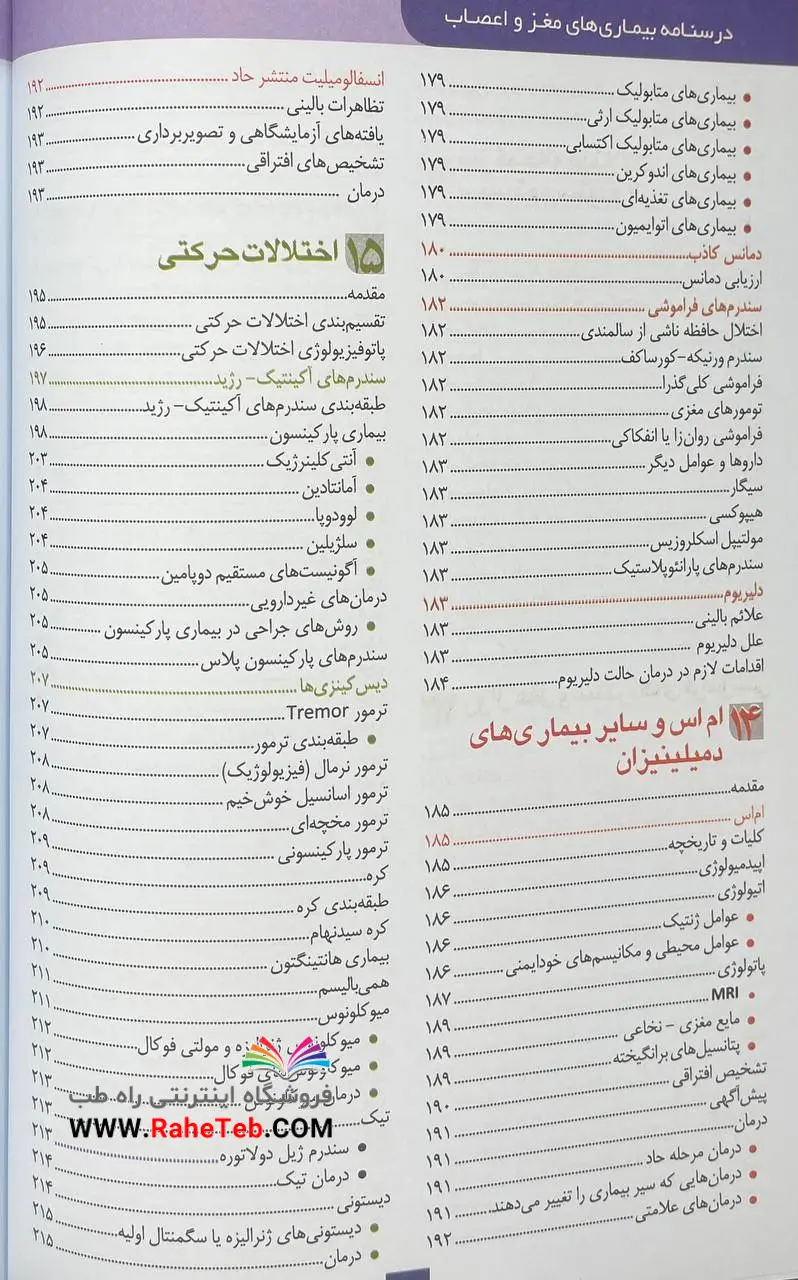 درسنامه بیماری‌های مغز و اعصاب
• بیماری‌های متابولیک ........ ۱۷۹
• بیماری‌های متابولیک ارثی ........ ۱۷۹
• بیماری‌های متابولیک اکتسابی ........ ۱۷۹
• بیماری‌های اندوکرین ........ ۱۷۹
• بیماری‌های تغذیه‌ای ........ ۱۷۹
• بیماری‌های اتوایمیون ........ ۱۷۹
دمانس کاذب ........ ۱۸۰
ارزیابی دمانس ........ ۱۸۰
سندرم‌های فراموشی ........ ۱۸۲
اختلال حافظه ناشی از سالمندی ........ ۱۸۲
سندرم ورنیکه-کورساکف ........ ۱۸۲
فراموشی کلی‌گذرا ........ ۱۸۲
تومورهای مغزی ........ ۱۸۲
فراموشی روان‌زا یا انفکاکی ........ ۱۸۲
داروها و عوامل دیگر ........ ۱۸۳
سیگار ........ ۱۸۳
هیپوکسی ........ ۱۸۳
مولتیپل اسکلروزیس ........ ۱۸۳
سندرم‌های پارانئوپلاستیک ........ ۱۸۳
دلیریوم ........ ۱۸۳
علائم بالینی ........ ۱۸۳
علل دلیریوم ........ ۱۸۳
اقدامات لازم در درمان حالت دلیریوم ........ ۱۸۴
۱۴ ام اس و سایر بیماری‌های
دمیلینیزان
مقدمه ........ ۱۸۵
ام‌اس ........ ۱۸۵
کلیات و تاریخچه ........ ۱۸۵
اپیدمیولوژی ........ ۱۸۶
اتیولوژی ........ ۱۸۶
• عوامل ژنتیک ........ ۱۸۶
• عوامل محیطی و مکانیسم‌های خودایمنی ........ ۱۸۶
پاتولوژی ........ ۱۸۷
• MRI ........ ۱۸۹
• مایع مغزی - نخاعی ........ ۱۸۹
• پتانسیل‌های برانگیخته ........ ۱۸۹
تشخیص افتراقی ........ ۱۹۰
پیش‌آگهی ........ ۱۹۱
درمان ........ ۱۹۱
• درمان مرحله حاد ........ ۱۹۱
• درمان‌هایی که سیر بیماری را تغییر می‌دهند ........ ۱۹۱
• درمان‌های علامتی ........ ۱۹۲
انسفالومیلیت منتشر حاد ........ ۱۹۲
تظاهرات بالینی ........ ۱۹۲
یافته‌های آزمایشگاهی و تصویربرداری ........ ۱۹۳
تشخیص‌های افتراقی ........ ۱۹۳
درمان ........ ۱۹۳
۱۵ اختلالات حرکتی
مقدمه ........ ۱۹۵
تقسیم‌بندی اختلالات حرکتی ........ ۱۹۵
پاتوفیزیولوژی اختلالات حرکتی ........ ۱۹۶
سندرم‌های آکینتیک- رژید ........ ۱۹۷
طبقه‌بندی سندرم‌های آکینتیک- رژید ........ ۱۹۸
بیماری پارکینسون ........ ۱۹۸
• آنتی‌کلینرژیک ........ ۲۰۳
• آمانتادین ........ ۲۰۴
• لوودوپا ........ ۲۰۴
• سلژیلین ........ ۲۰۴
• آگونیست‌های مستقیم دوپامین ........ ۲۰۵
درمان‌های غیردارویی ........ ۲۰۵
• روش‌های جراحی در بیماری پارکینسون ........ ۲۰۵
سندرم‌های پارکینسون پلاس ........ ۲۰۵
دیس‌کینزی‌ها ........ ۲۰۷
ترمور Tremor ........ ۲۰۷
• طبقه‌بندی ترمور ........ ۲۰۷
ترمور نرمال (فیزیولوژیک) ........ ۲۰۸
ترمور اسانسیل خوش‌خیم ........ ۲۰۸
ترمور مخچه‌ای ........ ۲۰۸
ترمور پارکینسونی ........ ۲۰۹
کره ........ ۲۰۹
طبقه‌بندی کره ........ ۲۰۹
کره سیدنهام ........ ۲۱۰
بیماری هانتینگتون ........ ۲۱۰
همی‌بالیسم ........ ۲۱۱
میوکلونوس ........ ۲۱۱
• میوکلونوس ژنرالیزه و مولتی فوکال ........ ۲۱۲
• میوکلونوس‌های فوکال ........ ۲۱۲
• درمان ........ ۲۱۳
تیک ........ ۲۱۳
• سندرم ژیل دولاتوره ........ ۲۱۴
• درمان تیک ........ ۲۱۴
دیستونی ........ ۲۱۵
• دیستونی‌های ژنرالیزه یا سگمنتال اولیه ........ ۲۱۵
• درمان
فروشگاه اینترنتی راه طب
WWW.RaheTeb.COM